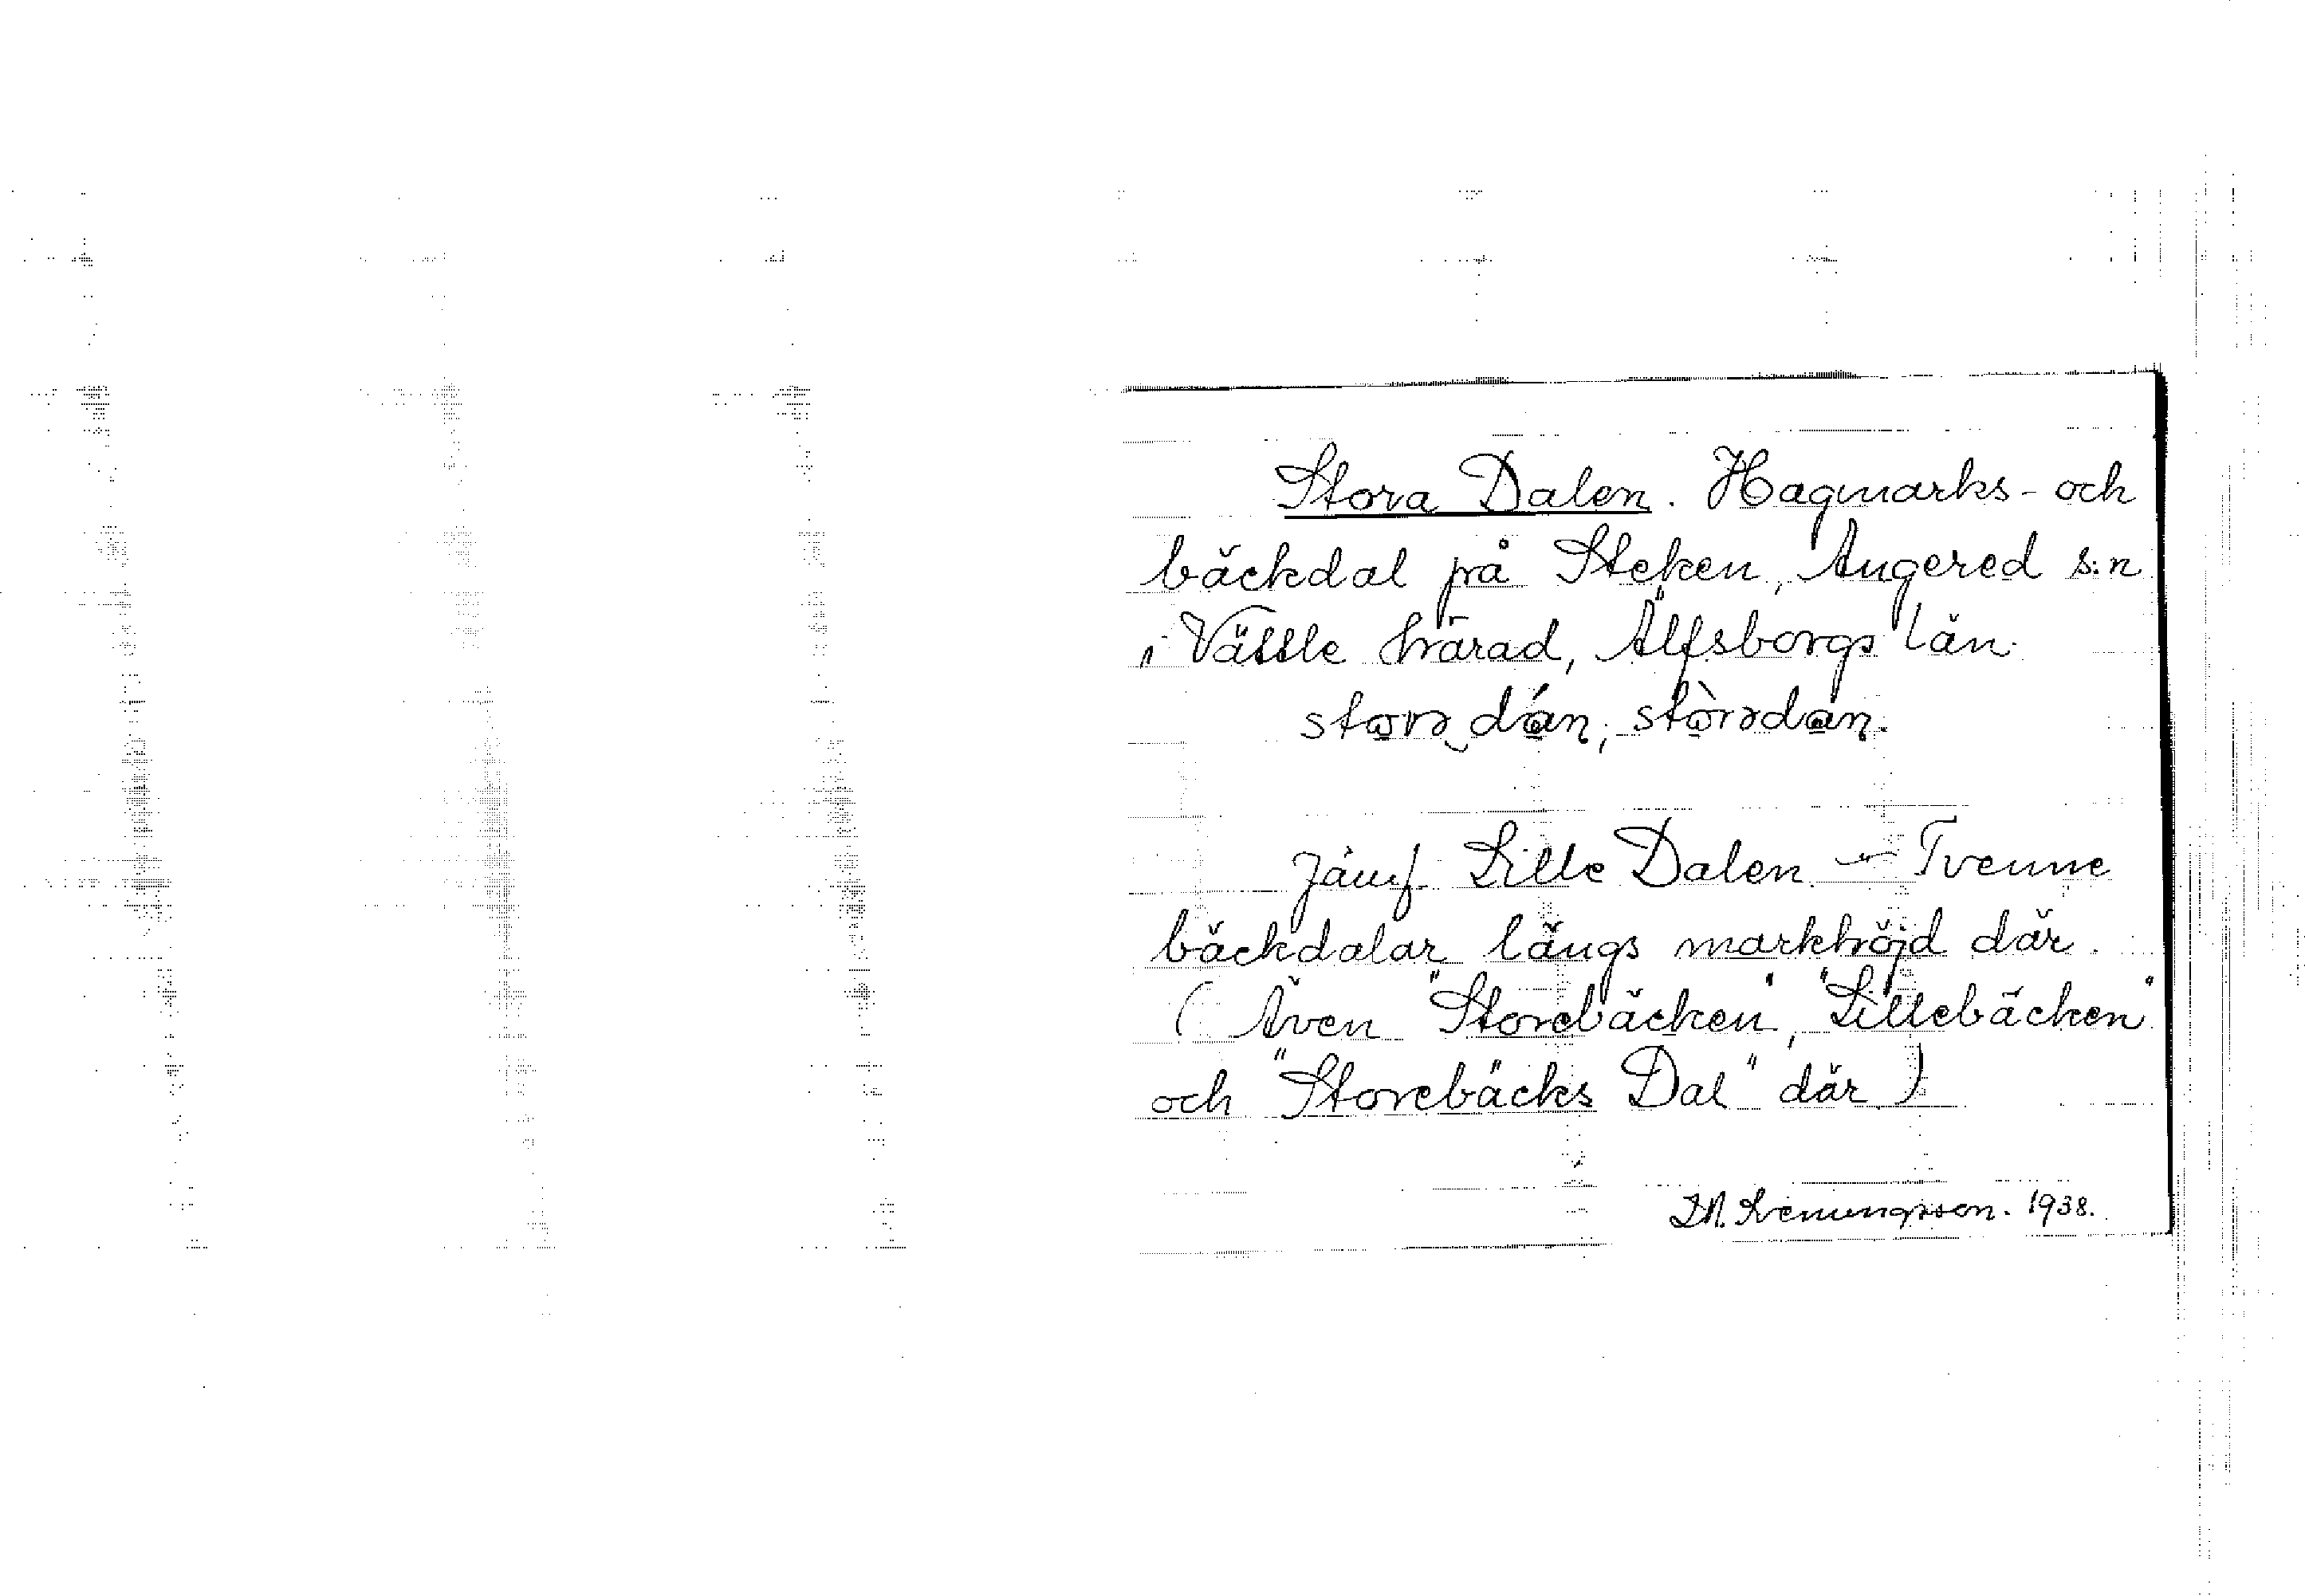 Stora Dalen. Hagmarks- och
bäckdal på Steken, Angered s:n
i Vättle härad, Älfsborgs län.
storə dán; stòrədan.
Jämf. Lille Dalen. — Tvenne
bäckdalar längs markhöjd där.
(Även "Storebäcken", "Lillebäcken"
och "Storebäcks Dal" där)
1938.